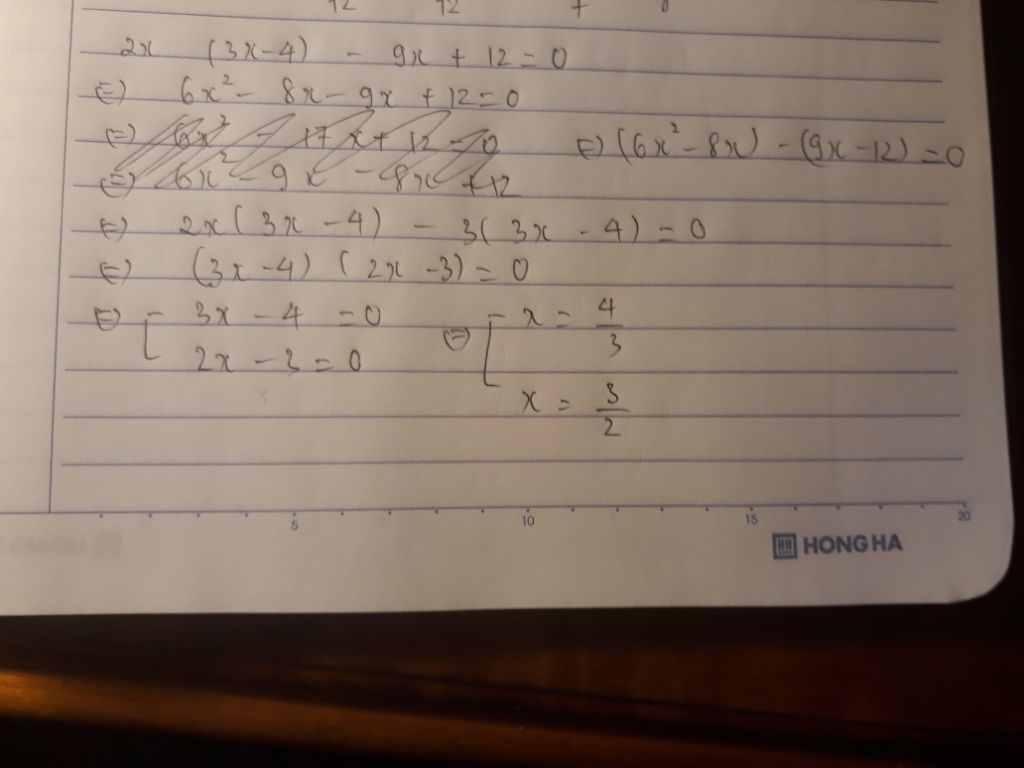 12 12 7
2x (3x-4) - 9x + 12 = 0
⇔ 6x² - 8x - 9x + 12 = 0
⇔ 6x² - 17x + 12 = 0 ⇔ (6x² - 8x) - (9x - 12) = 0
⇔ 6x² - 9x - 8x + 12
⇔ 2x(3x - 4) - 3(3x - 4) = 0
⇔ (3x - 4) (2x - 3) = 0
⇔ [ 3x - 4 = 0 ⇔ [ x = 4/3
2x - 3 = 0
x = 3/2
5 10 15 20
HONG HA